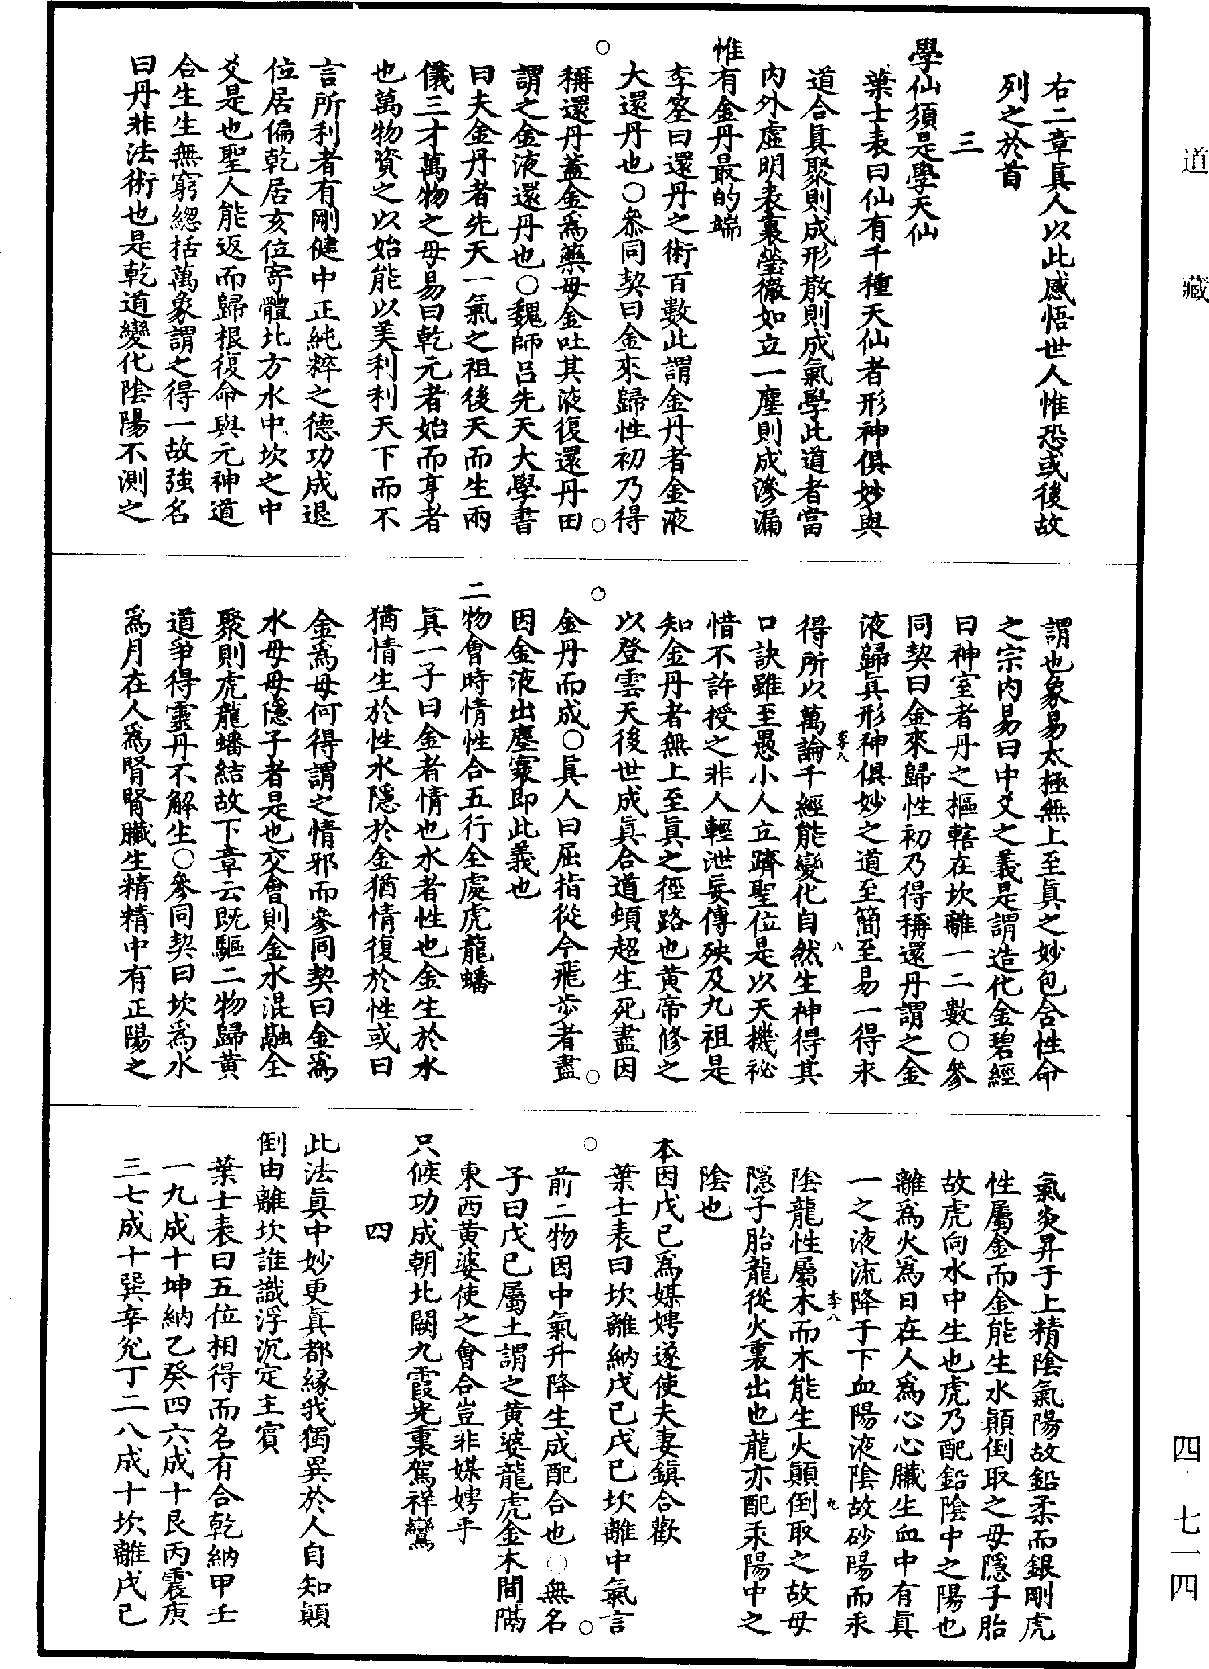 道藏
右二章眞人以此感悟世人惟恐或後故
列之於首
三
學仙須是學天仙
葉士表曰仙有千種天仙者形神俱妙與
道合真聚則成形散則成氣學此道者當
內外虛明表裏瑩徹如立一塵則成滲漏
惟有金丹最的端
李筌曰還丹之術百數此謂金丹者金液
大還丹也○叅同契曰金來歸性初乃得
稱還丹蓋金爲藥母金吐其液復還丹田
謂之金液還丹也○魏師呂先天大學書
曰夫金丹者先天一氣之祖後天而生兩
儀三才萬物之母易曰乾元者始而亨者
也萬物資之以始能以美利利天下而不
言所利者有剛健中正純粹之德功成退
位居偏乾居亥位寄體北方水中坎之中
爻是也聖人能返而歸根復命與元神道
合生生無窮緫括萬象謂之得一故強名
曰丹非法術也是乾道變化陰陽不測之
謂也象易太極無上至眞之妙包含性命
之宗內易曰中爻之義是謂造化金碧經
曰神室者丹之樞轄在坎離一二數○參
同契曰金來歸性初乃得稱還丹謂之金
液歸真形神俱妙之道至簡至易一得永
得所以萬論千經能變化自然生神得其
口訣雖至愚小人立躋聖位是以天機祕
惜不許授之非人輕泄妄傳殃及九祖是
知金丹者無上至眞之徑路也黄帝修之
以登雲天後世成眞合道頓超生死盡因
金丹而成○眞人曰屈指從今飛步者盡
因金液出塵寰即此義也
二物會時情性合五行全處虎龍蟠
眞一子曰金者情也水者性也金生於水
猶情生於性水隱於金猶情復於性或曰
金爲母何得謂之情邪而參同契曰金爲
水母母隱子者是也交會則金水混融全
聚則虎龍蟠結故下章云旣驅二物歸黄
道爭得靈丹不解生○參同契曰坎爲水
爲月在人爲腎腎臟生精精中有正陽之
氣炎昇于上精陰氣陽故鉛柔而銀剛虎
性屬金而金能生水顚倒取之母隱子胎
故虎向水中生也虎乃配鉛陰中之陽也
離爲火爲日在人爲心心臟生血中有眞
一之液流降于下血陽液陰故砂陽而汞
陰龍性屬木而木能生火顚倒取之故母
隱子胎龍從火裏出也龍亦配汞陽中之
陰也
本因戊己爲媒娉遂使夫妻鎮合歡
葉士表曰坎離納戊己戊己坎離中氣言
前二物因中氣升降生成配合也○無名
子曰戊己屬土謂之黄婆龍虎金木間隔
東西黄婆使之會合豈非媒娉乎
只候功成朝北闕九霞光裏駕祥鸞
四
此法真中妙更真都緣我獨異於人自知顚
倒由離坎誰識浮沉定主賓
葉士表曰五位相得而名有合乾納甲壬
一九成十坤納乙癸四六成十艮丙震庚
三七成十巽辛兌丁二八成十坎離戊己
四 七一四